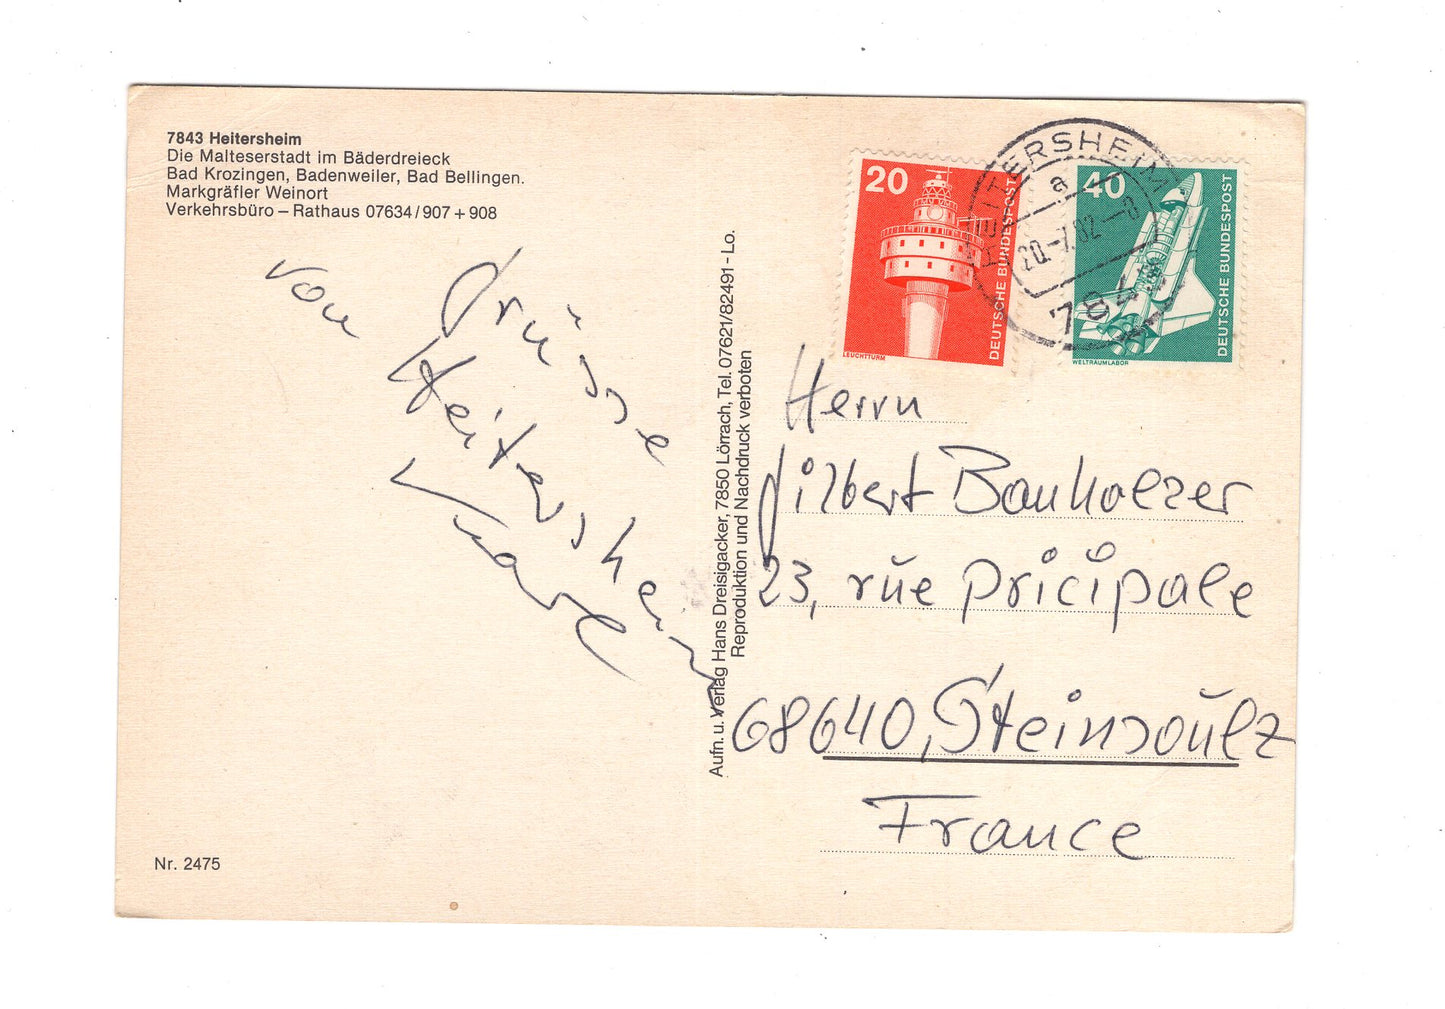 7843 Heitersheim
Die Malteserstadt im Bäderdreieck
Bad Krozingen, Badenweiler, Bad Bellingen.
Markgräfler Weinort
Verkehrsbüro – Rathaus 07634/907 + 908
Grüsse
von Heitersheim
Karl
Nr. 2475
Aufn. u. Verlag Hans Dreisigacker, 7850 Lörrach, Tel. 07621/82491 - Lo.
Reproduktion und Nachdruck verboten
20
DEUTSCHE BUNDESPOST
LEUCHTTURM
40
DEUTSCHE BUNDESPOST
WELTRAUMLABOR
HEITERSHEIM
a
20.-7.82--8
7843
Herrn
Gilbert Banholzer
23, rue Pricipale
68640, Steinsoultz
France